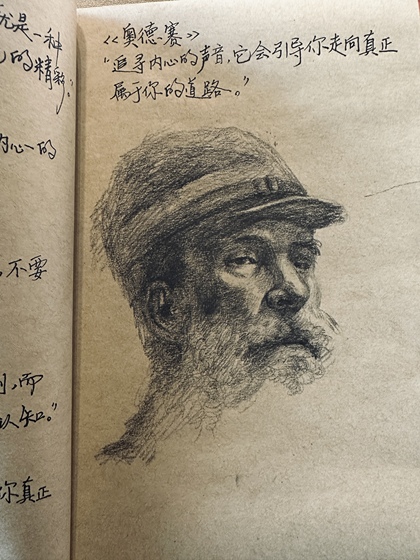 是一种
的精彩。”
内心的
,不要
,而
认知。”
你真正
《奥德赛》
“追寻内心的声音,它会引导你走向真正
属于你的道路。”